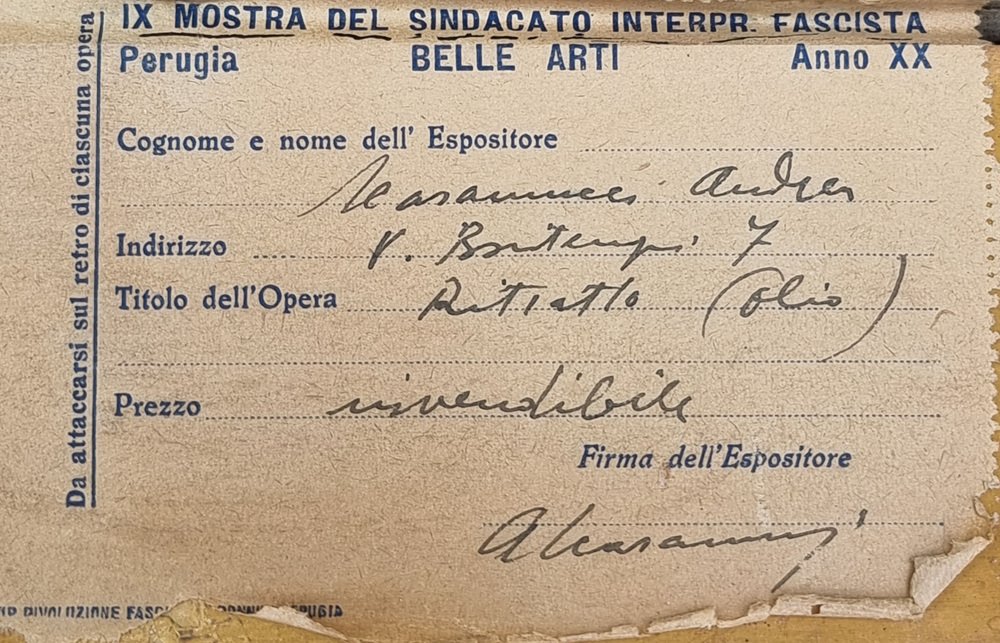 IX MOSTRA DEL SINDACATO INTERPR. FASCISTA
Perugia BELLE ARTI Anno XX
Da attaccarsi sul retro di ciascuna opera
Cognome e nome dell' Espositore
Andrea
Indirizzo V. Bontempi 7
Titolo dell'Opera Ritratto (olio)
Prezzo invendibile
Firma dell'Espositore
RIVOLUZIONE PERUGIA